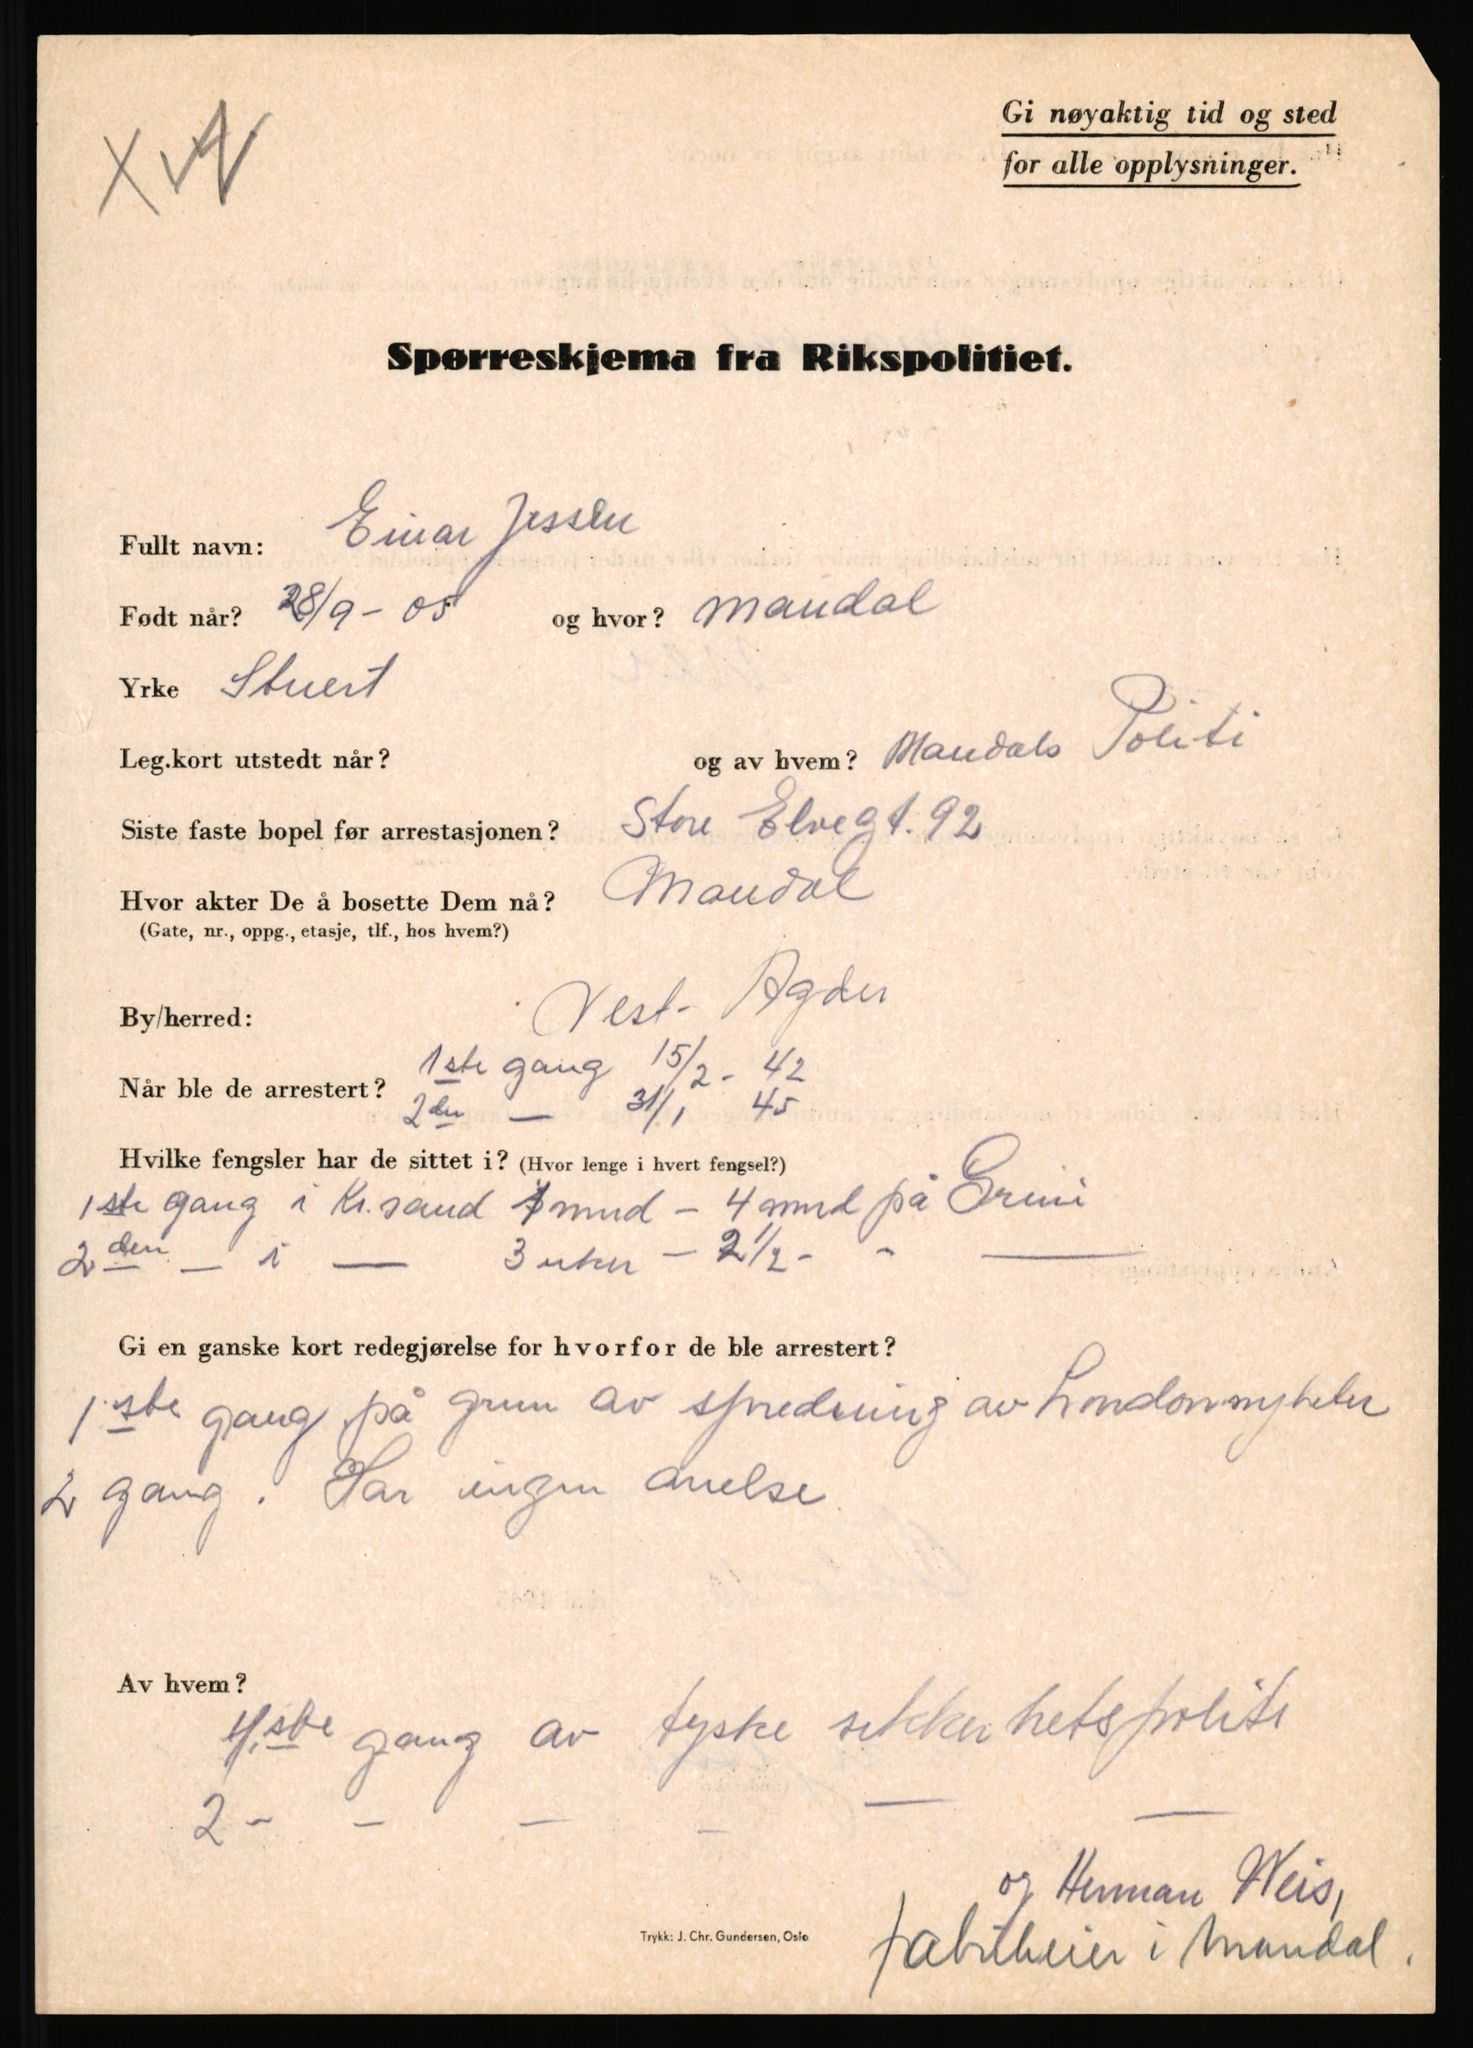 Gi nøyaktig tid og sted
for alle opplysninger.
Spørreskjema fra Rikspolitiet.
Fullt navn: Einar Jessen
Født når? 28/9 - 05 og hvor? Mandal
Yrke Stuert
Leg.kort utstedt når? og av hvem? Mandals Politi
Siste faste bopel før arrestasjonen? Store Elvegt. 92
Hvor akter De å bosette Dem nå? Mandal
(Gate, nr., oppg., etasje, tlf., hos hvem?)
By/herred: Vest-Agder
Når ble de arrestert? 1ste gang 15/2 - 42
2den — 31/1 45
Hvilke fengsler har de sittet i? (Hvor lenge i hvert fengsel?)
1ste gang i Kr.sand 1 mnd - 4 mnd på Grini
2den — i — 3 uker - 2 1/2 - " ——
Gi en ganske kort redegjørelse for hvorfor de ble arrestert?
1ste gang på grun av spredning av Londonnyheter
2 gang. Har ingen anelse.
Av hvem?
1ste gang av tyske sikkerhetspoliti
2 - - - - — —
og Herman Weis,
fabrikeier i Mandal.
Trykk: J. Chr. Gundersen, Oslo